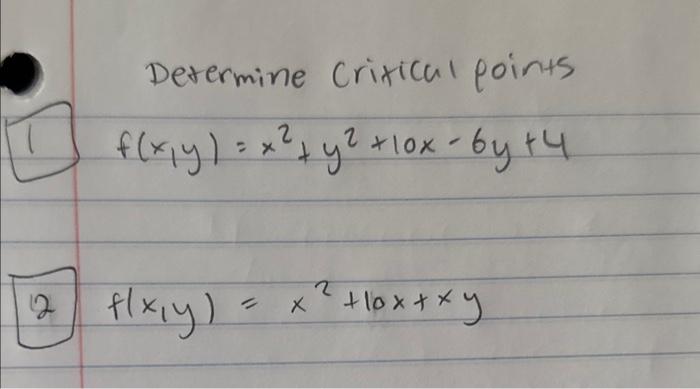 Determine Critical points
1 f(x,y) = x² + y² + 10x - 6y + 4
2 f(x,y) = x² + 10x + xy